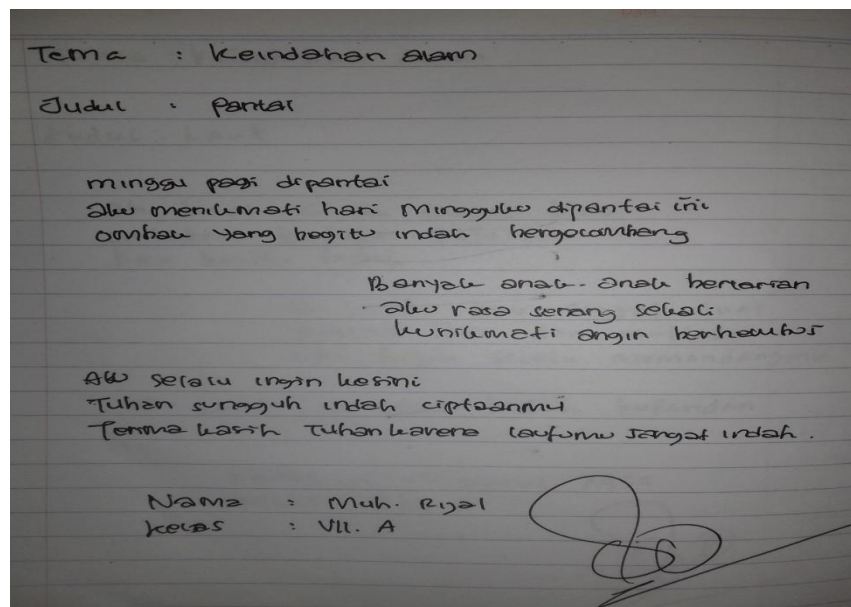 Tema : Keindahan alam
Judul : Pantai
minggu pagi dipantai
aku menikmati hari Mingguku dipantai ini
ombak yang begitu indah bergelombang
Banyak anak-anak berlarian
aku rasa senang sekali
kunikmati angin berhembus
Aku selalu ingin kesini
Tuhan sungguh indah ciptaanmu
Terima kasih Tuhan karena lautmu sangat indah.
Nama : Muh. Rijal
Kelas : VII. A